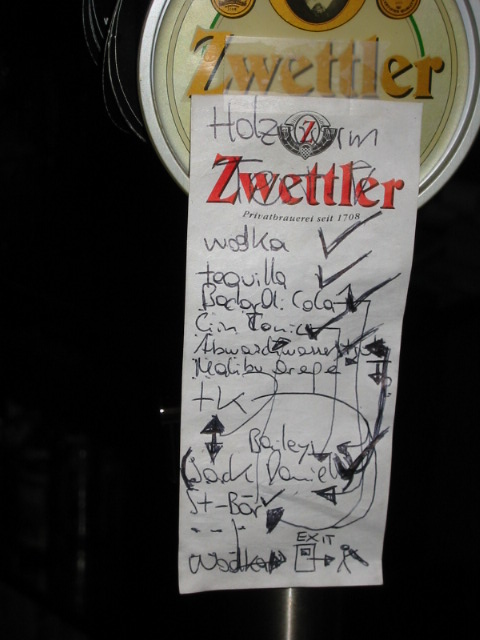 Zwettler
Holzwurm
Zwettler
Privatbrauerei seit 1708
wodka
tequilla
Bacardi Cola
Gin Tonic
Abwaschwasser
Malibu Orange
+K
Baileys
Jack Daniels
St-Bär
EXIT
Wodka